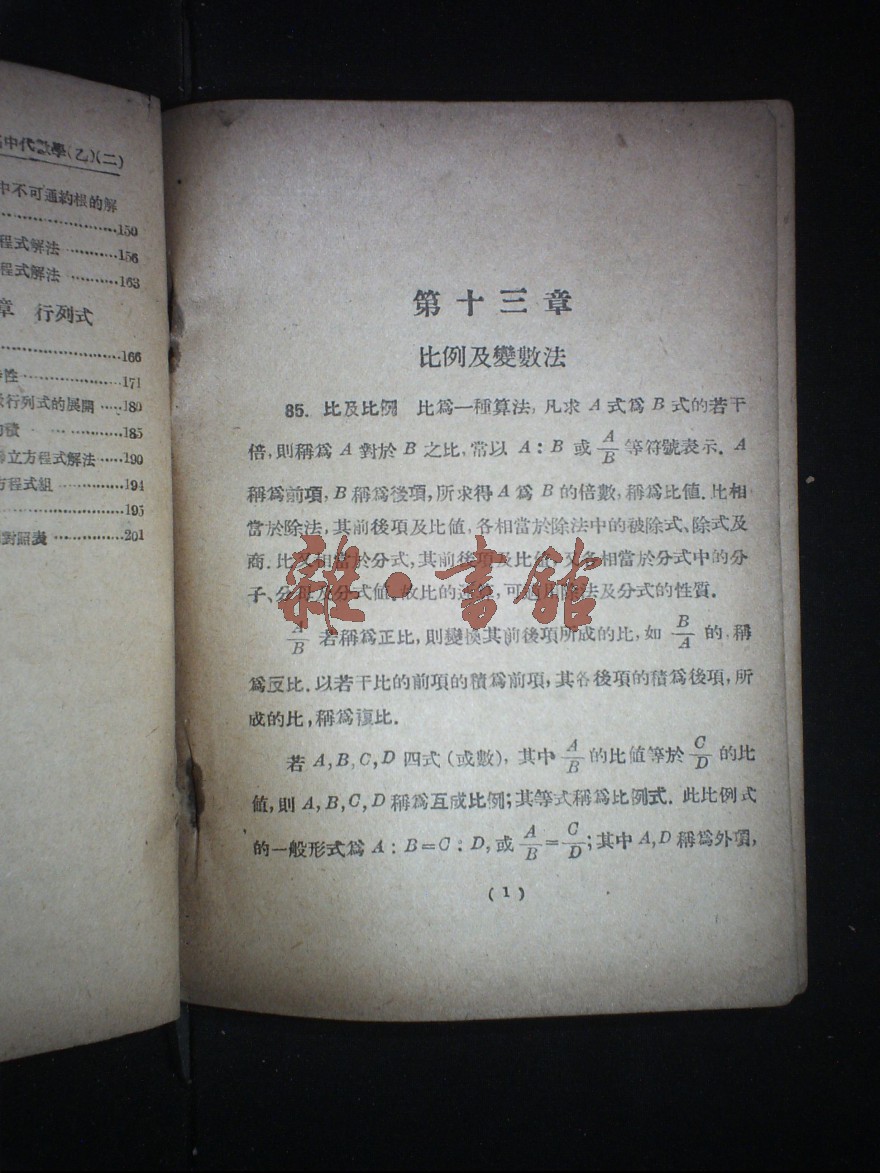 中代數學(乙)(二)
中不可通約根的解
……150
程式解法……156
程式解法……163
章 行列式
……166
性……171
行列式的展開……180
積……185
立方程式解法……190
方程式組……194
……195
對照表……201
第十三章
比例及變數法
85. 比及比例 比為一種算法,凡求 A 式為 B 式的若干
倍,則稱為 A 對於 B 之比,常以 A : B 或 A/B 等符號表示. A
稱為前項,B 稱為後項,所求得 A 為 B 的倍數,稱為比值.比相
當於除法,其前後項及比值,各相當於除法中的被除式、除式及
商.比又相當於分式,其前後項及比值,又各相當於分式中的分
子、分母及分式值.故比的運算,可適用除法及分式的性質.
A/B 若稱為正比,則變換其前後項所成的比,如 B/A 的,稱
為反比.以若干比的前項的積為前項,其各後項的積為後項,所
成的比,稱為複比.
若 A,B,C,D 四式(或數),其中 A/B 的比值等於 C/D 的比
值,則 A,B,C,D 稱為互成比例;其等式稱為比例式.此比例式
的一般形式為 A : B=C : D,或 A/B=C/D;其中 A,D 稱為外項,
(1)
雜·書館